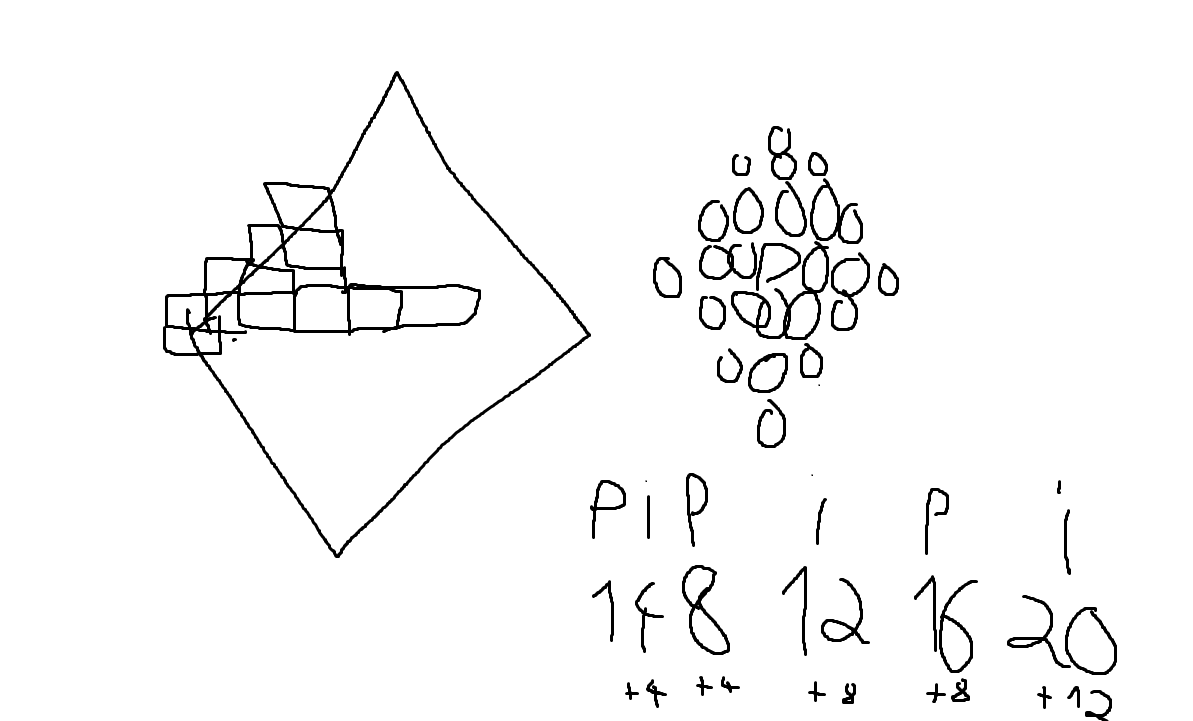 P
P i P i P i
1 4 8 12 16 20
+4 +4 +8 +8 +12